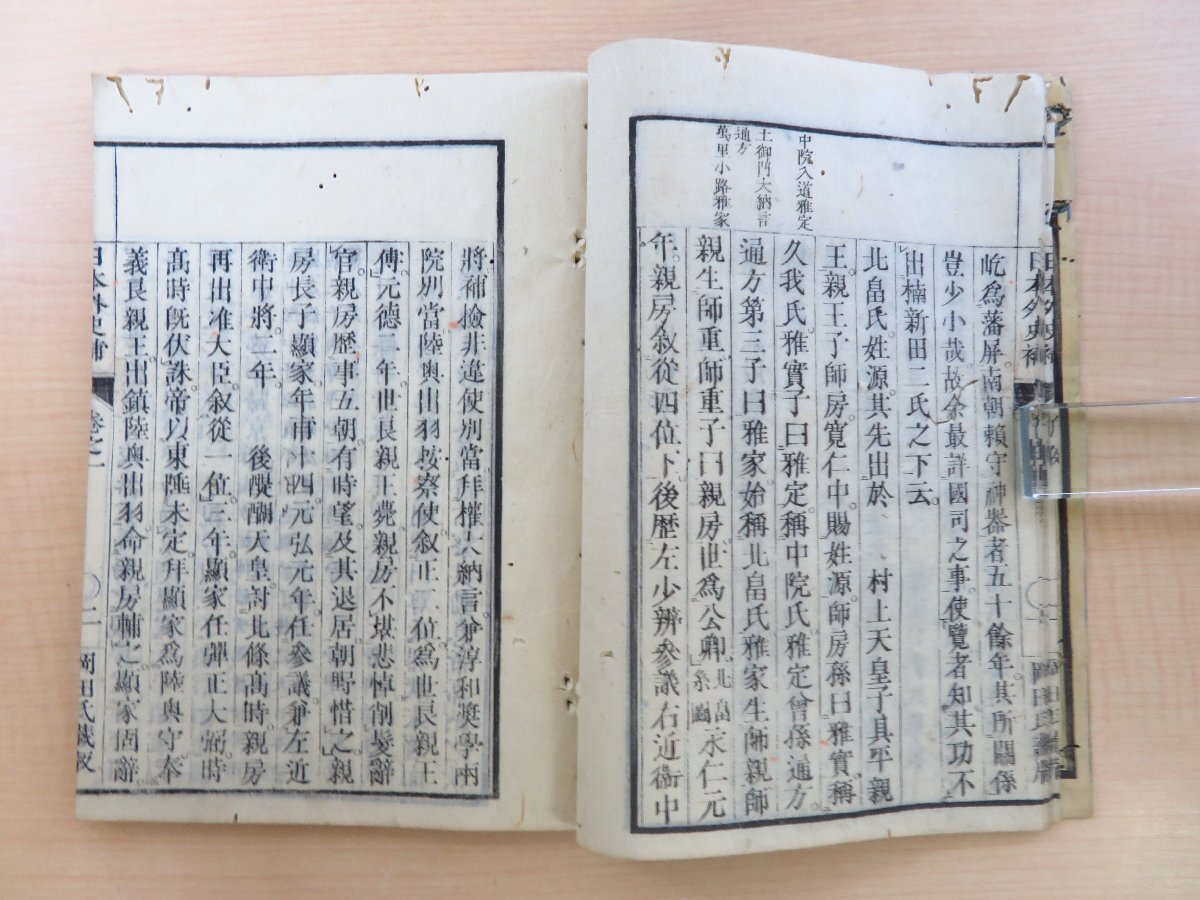 日本外史補
岡田氏藏版
中院入道雅定
土御門大納言
通方
萬里小路雅家
屹爲藩屏。南朝賴守神器者五十餘年。其所關係
豈少小哉。故余最詳國司之事。使覽者知其功不
出楠新田二氏之下云。
北畠氏。姓源。其先出於 村上天皇子具平親
王。親王子師房。寬仁中。賜姓源。師房孫曰雅實。稱
久我氏。雅實子曰雅定。稱中院氏。雅定曾孫通方。
通方第三子曰雅家。始稱北畠氏。雅家生師親。師
親生師重。師重子曰親房。世爲公卿。北畠系圖永仁元
年。親房叙從四位下。後歷左少辨參議右近衞中
將。補撿非違使別當。拜權大納言。兼淳和奬學兩
院別當。陸奧出羽按察使。叙正二位。爲世良親王
傅。元德二年。世良親王薨。親房不堪悲悼。削髮辭
官。親房歷事五朝。有時望。及其退居。朝野惜之。親
房長子顯家。年甫十四。元弘元年。任參議兼左近
衞中將。二年。 後醍醐天皇。討北條高時。親房
再出准大臣。叙從一位。三年。顯家任彈正大弼。時
高時旣伏誅。帝以東陲未定。拜顯家爲陸奧守。奉
義良親王。出鎭陸奧出羽。命親房輔之。顯家固辭
日本外史補
卷之一
二
岡田氏藏版